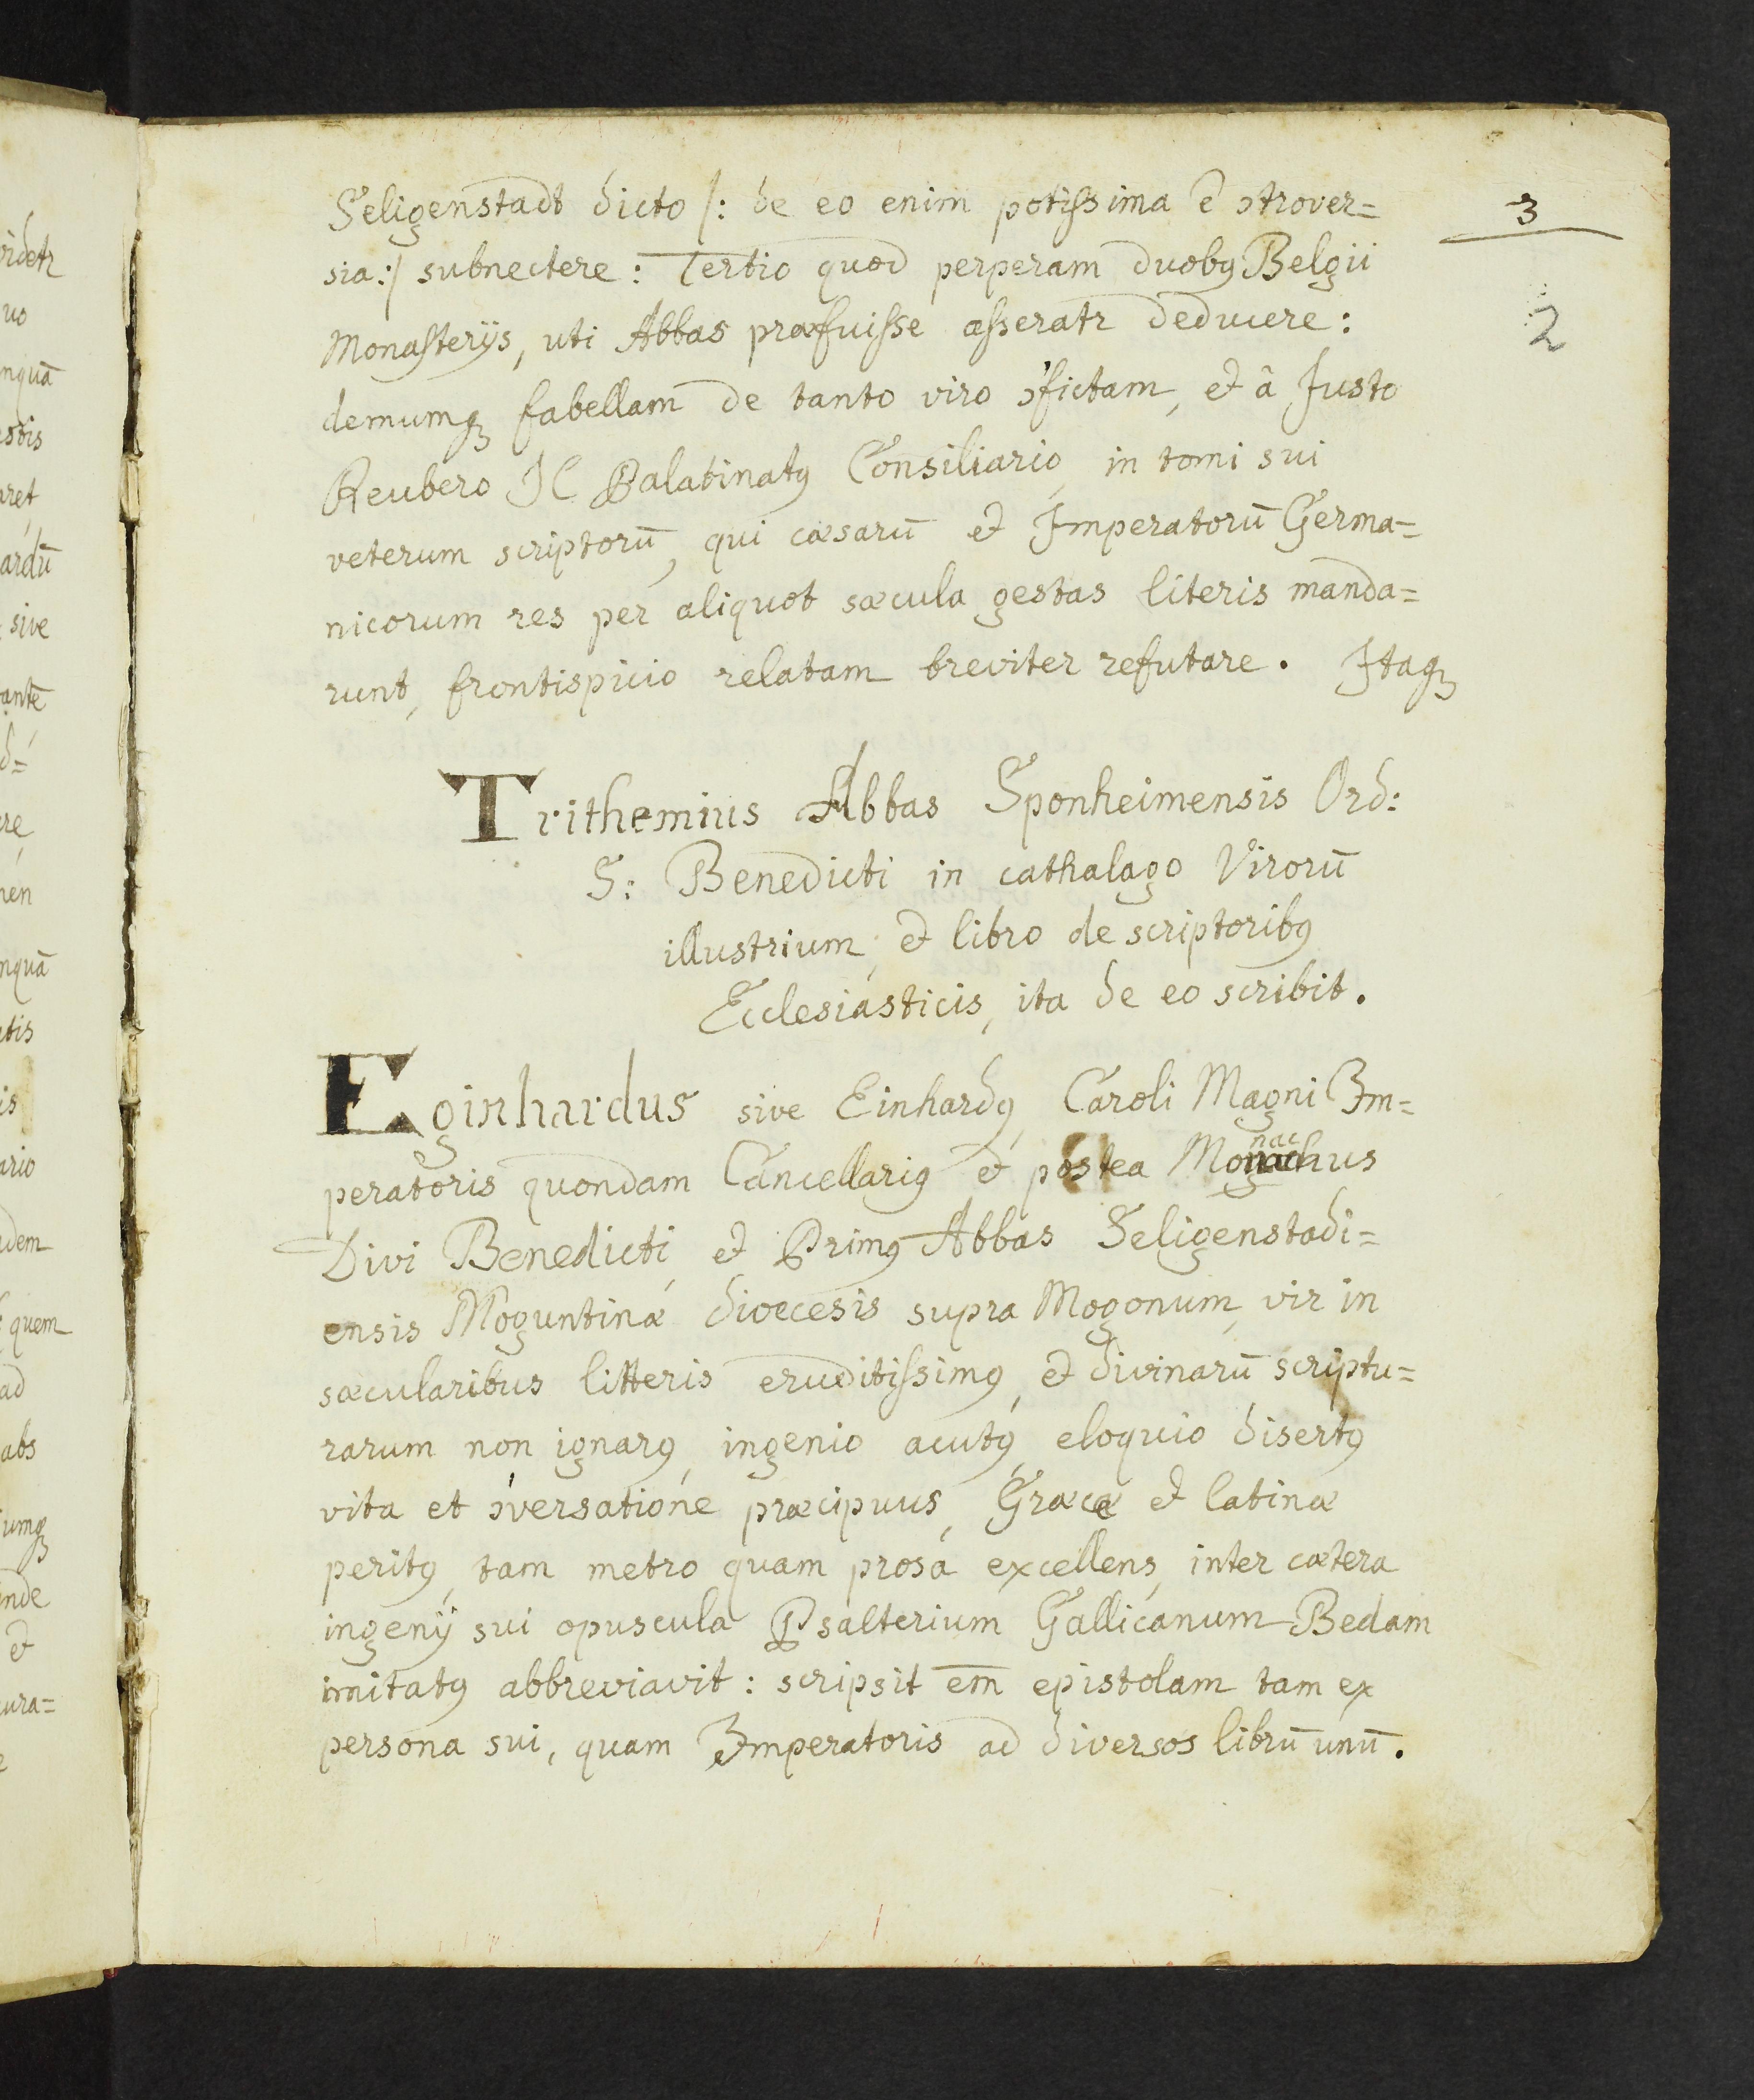 Seligenstadt dicto /: de eo enim potissima ē ɔtrover=
sia:/ subnectere: Tertio quod perperam duobꝯ Belgii
Monasterijs, uti Abbas præfuisse asseratr deducere:
demumqꝫ fabellam de tanto viro ɔfictam, et â Justo
Reubero JC Palatinatꝯ Consiliario, in tomi sui
veterum scriptorū, qui cæsarū et Imperatorū Germa=
nicorum res per aliquot sæcula gestas literis manda=
runt, frontispicio relatam breviter refutare. Itaqꝫ
3
2
Trithemius Abbas Sponheimensis Ord:
S: Benedicti in cathalago Virorū
illustrium, et libro de scriptoribꝯ
Ecclesiasticis, ita de eo scribit.
Eginhardus sive Einhardꝯ, Caroli Magni Im=
peratoris quondam Cancellariꝯ et postea Monachus
nac
Divi Benedicti, et Primꝯ Abbas Seligenstadi=
ensis Moguntinæ diœcesis supra Mogonum, vir in
sæcularibus litteris eruditissimꝯ, et divinarū scriptu=
rarum non ignarꝯ, ingenio acutꝯ, eloquio disertꝯ
vita et ɔversatione præcipuus, Græcæ et latinæ
peritꝯ, tam metro quam prosa excellens, inter cætera
ingenij sui opuscula Psalterium Gallicanum Bedam
imitatꝯ abbreviavit: scripsit em̄ epistolam tam ex
persona sui, quam Imperatoris ad diversos librū unū.
videtr
uo
nquā
aret
ardū
sive
antē
d=
re
nquā
is
ario
quem
ad
abs
umqꝫ
inde
et
ura=